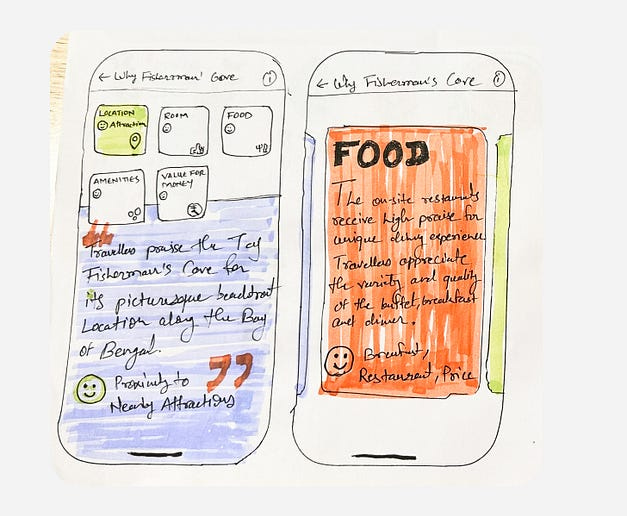 ← Why Fisherman' Cove i
LOCATION
Attraction
ROOM
FOOD
AMENITIES
VALUE FOR
MONEY
"
Travellers praise the Taj
Fisherman's Cove for
its picturesque beachfront
Location along the Bay
of Bengal.
Proximity to
Nearby Attractions
"
← Why Fisherman's Cove i
FOOD
The on-site restaurants
receive high praise for
unique dining experience
Travellers appreciate
the variety and quality
of the buffet, breakfast
and dinner.
Breakfast,
Restaurant, Price